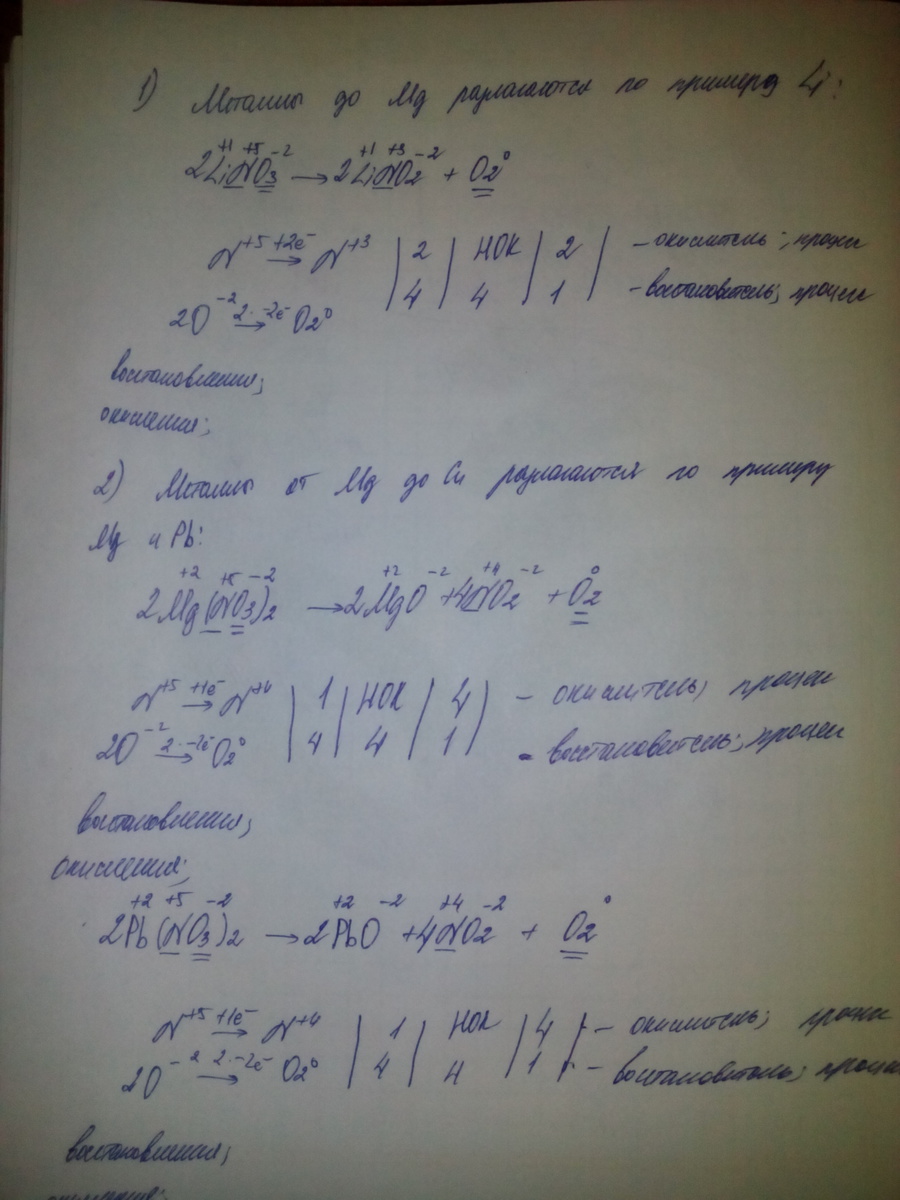 1) Металлы до Mg разлагаются по примеру Li:
2Li⁺¹N⁺⁵O₃⁻² → 2Li⁺¹N⁺³O₂⁻² + O₂⁰
N⁺⁵ +2e⁻ → N⁺³ | 2 | НОК | 2 | – окислитель; процесс
2O⁻² 2·-2e⁻ → O₂⁰ | 4 | 4 | 1 | – восстановитель; процесс
восстановления;
окисления;
2) Металлы от Mg до Cu разлагаются по примеру
Mg и Pb:
2Mg⁺²(N⁺⁵O₃⁻²)₂ → 2Mg⁺²O⁻² + 4N⁺⁴O₂⁻² + O₂⁰
N⁺⁵ +1e⁻ → N⁺⁴ | 1 | НОК | 4 | – окислитель; процесс
2O⁻² 2·-2e⁻ → O₂⁰ | 4 | 4 | 1 | – восстановитель; процесс
восстановления;
окисления;
2Pb⁺²(N⁺⁵O₃⁻²)₂ → 2Pb⁺²O⁻² + 4N⁺⁴O₂⁻² + O₂⁰
N⁺⁵ +1e⁻ → N⁺⁴ | 1 | НОК | 4 | – окислитель; процесс
2O⁻² 2·-2e⁻ → O₂⁰ | 4 | 4 | 1 | – восстановитель; процесс
восстановления;